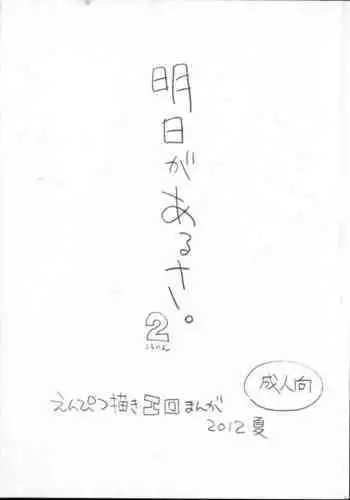 明日があるさ。
2
成人向
えんぴつ描き エロ まんが
2012 夏